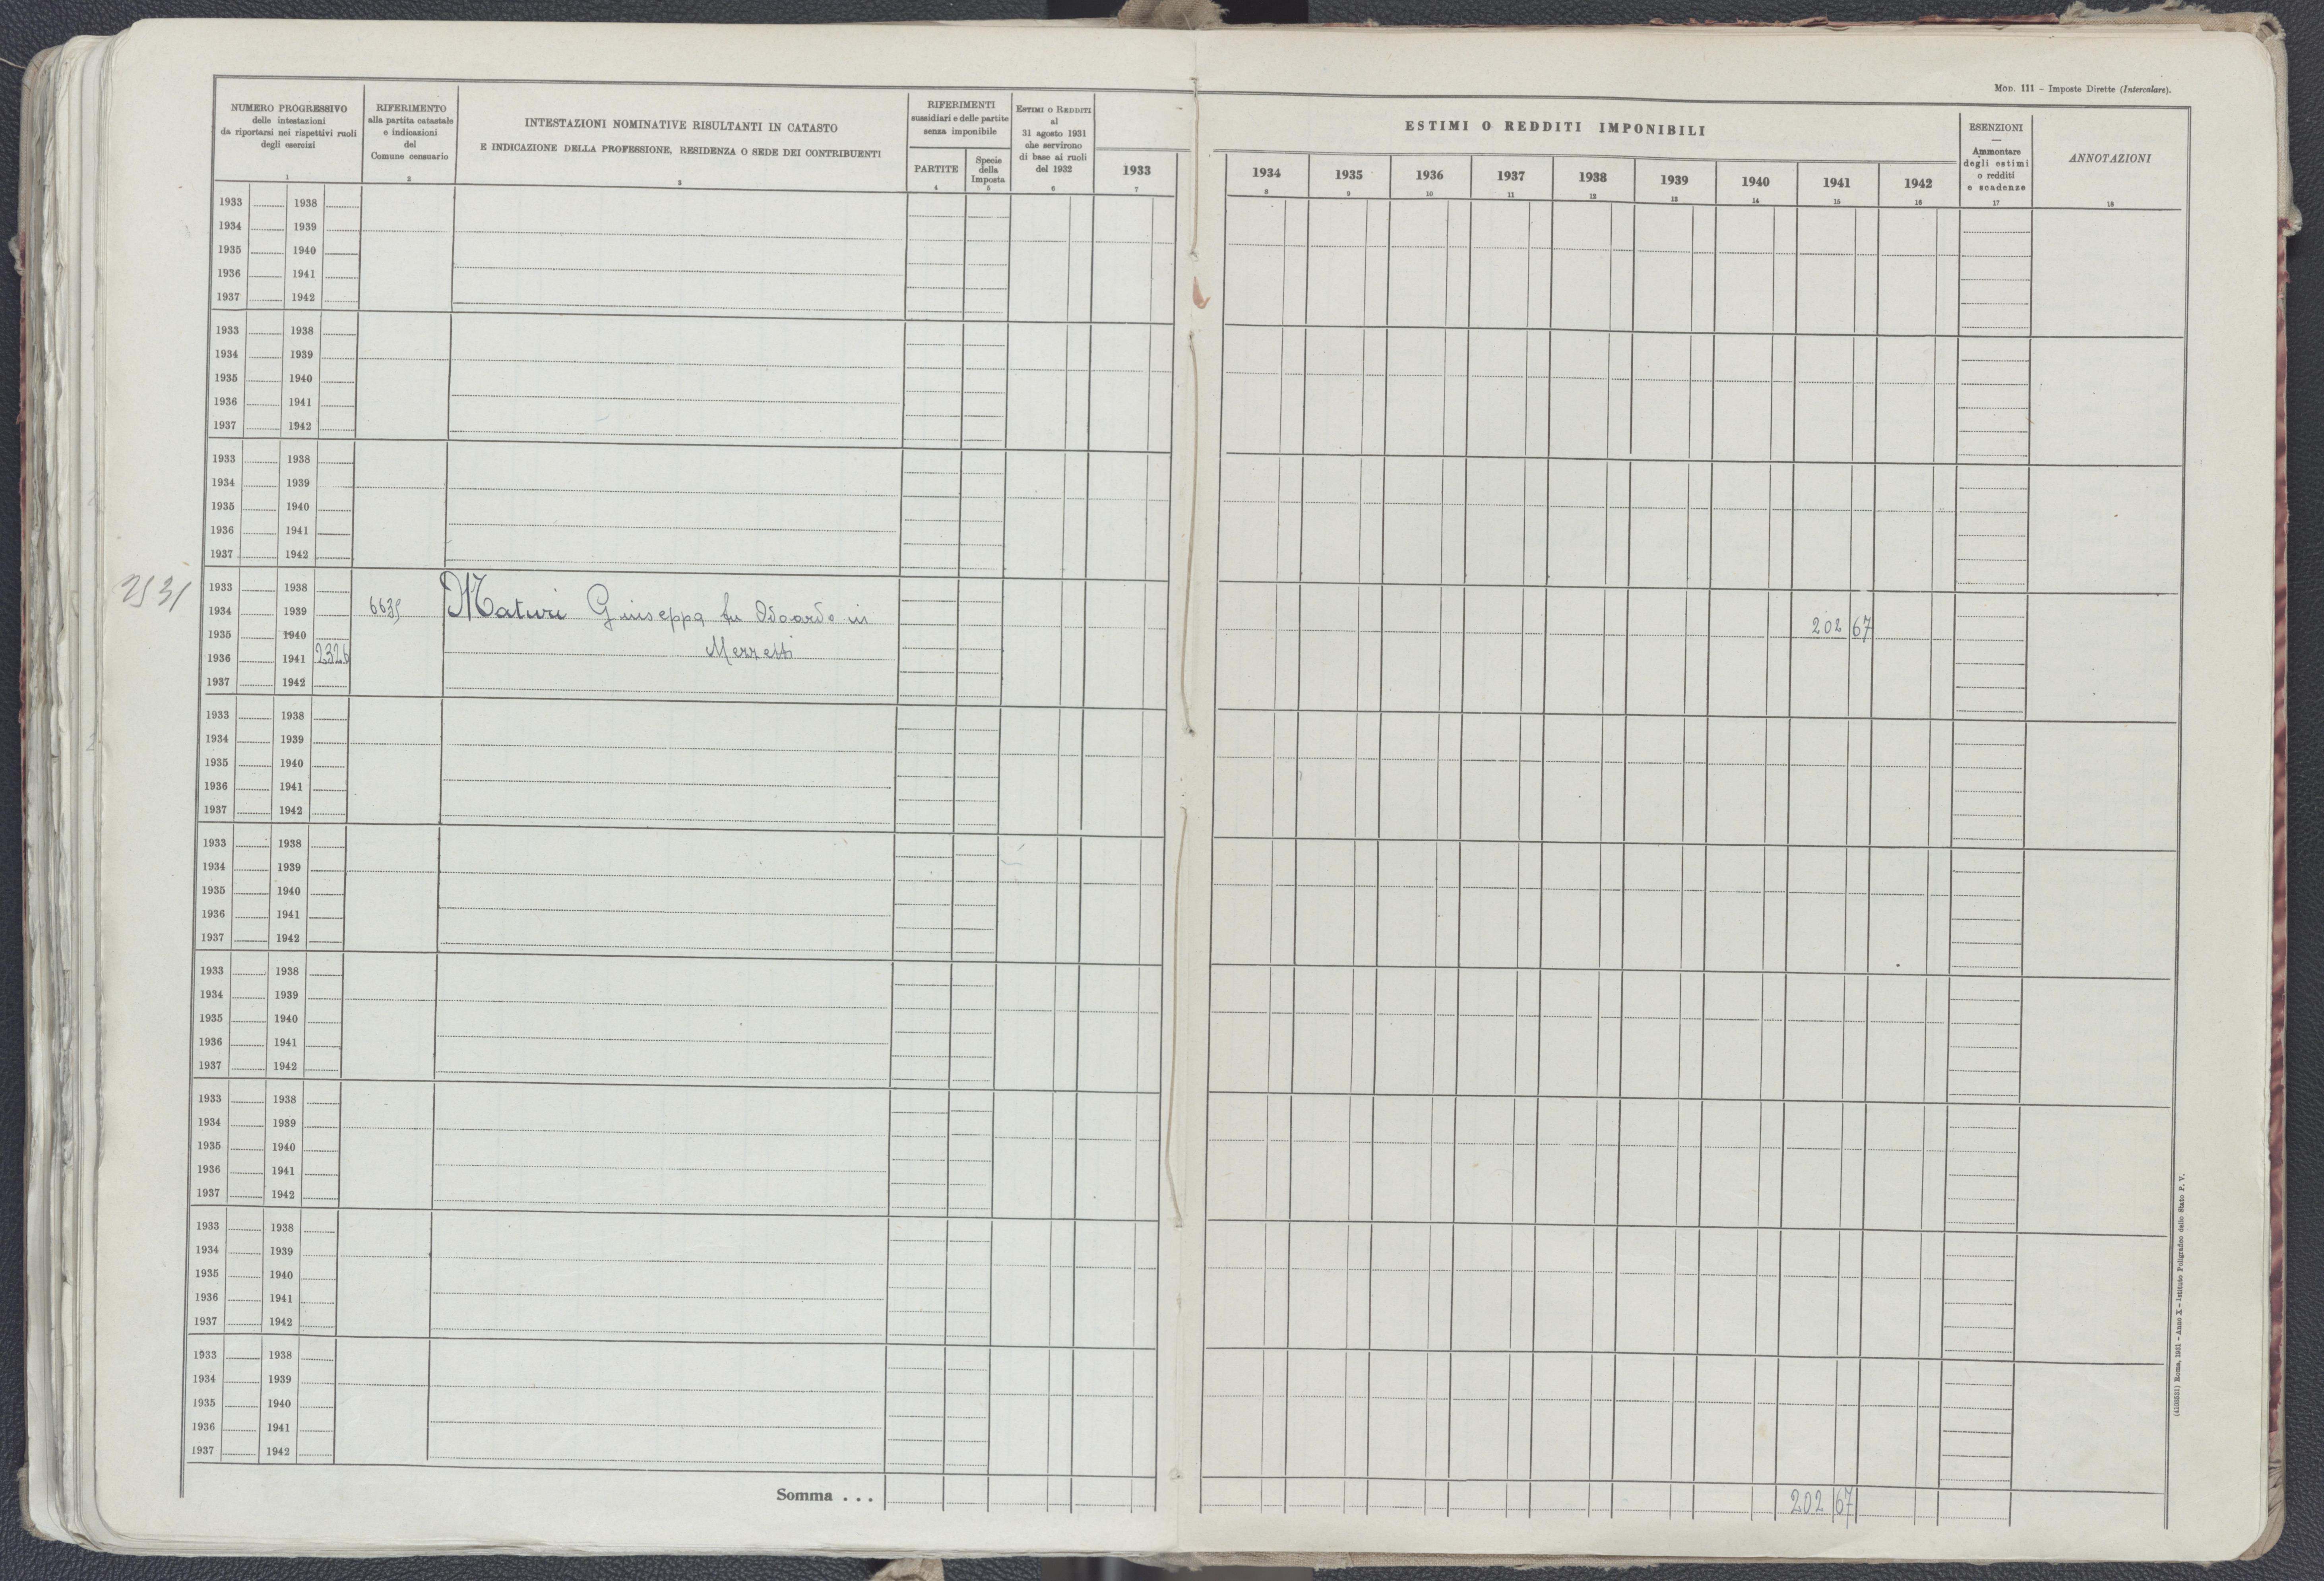 Mod. 111 – Imposte Dirette (Intercalare).
NUMERO PROGRESSIVO
delle intestazioni
da riportarsi nei rispettivi ruoli
degli esercizi
1
RIFERIMENTO
alla partita catastale
e indicazioni
del
Comune censuario
2
INTESTAZIONI NOMINATIVE RISULTANTI IN CATASTO
E INDICAZIONE DELLA PROFESSIONE, RESIDENZA O SEDE DEI CONTRIBUENTI
3
RIFERIMENTI
sussidiari e delle partite
senza imponibile
PARTITE
4
Specie
della
Imposta
5
Estimi o Redditi
al
31 agosto 1931
che servirono
di base ai ruoli
del 1932
6
1933
7
ESTIMI O REDDITI IMPONIBILI
1934 1935 1936 1937 1938 1939 1940 1941 1942
8 9 10 11 12 13 14 15 16
ESENZIONI
—
Ammontare
degli estimi
o redditi
e scadenze
17
ANNOTAZIONI
18
1933 1938
1934 1939
1935 1940
1936 1941
1937 1942
1933 1938
1934 1939
1935 1940
1936 1941
1937 1942
1933 1938
1934 1939
1935 1940
1936 1941
1937 1942
2531
1933 1938
1934 1939 6635 Maturi Giuseppa fu Odoardo in
1935 1940 202 67
1936 1941 2326 Merzetti
1937 1942
1933 1938
1934 1939
1935 1940
1936 1941
1937 1942
1933 1938
1934 1939
1935 1940
1936 1941
1937 1942
1933 1938
1934 1939
1935 1940
1936 1941
1937 1942
1933 1938
1934 1939
1935 1940
1936 1941
1937 1942
1933 1938
1934 1939
1935 1940
1936 1941
1937 1942
1933 1938
1934 1939
1935 1940
1936 1941
1937 1942
Somma . . . 202 67
(410531) Roma, 1931 – Anno X – Istituto Poligrafico dello Stato P. V.